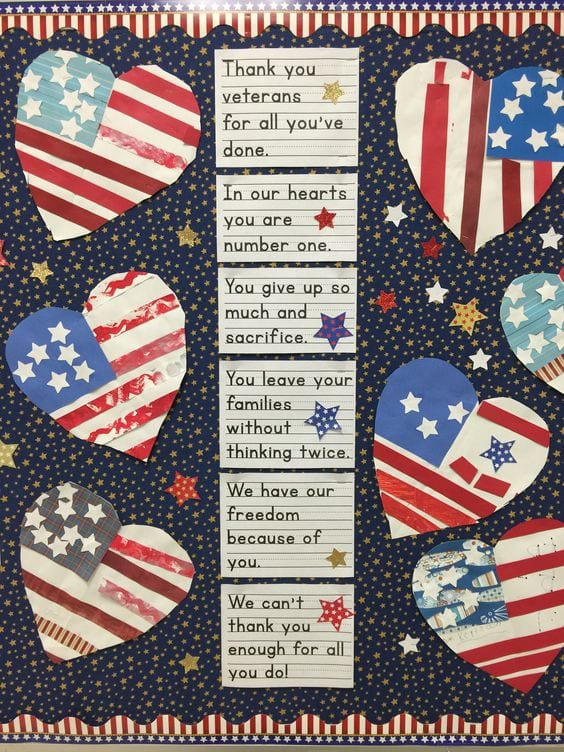 Thank you
veterans
for all you've
done.
In our hearts
you are
number one.
You give up so
much and
sacrifice.
You leave your
families
without
thinking twice.
We have our
freedom
because of
you.
We can't
thank you
enough for all
you do!